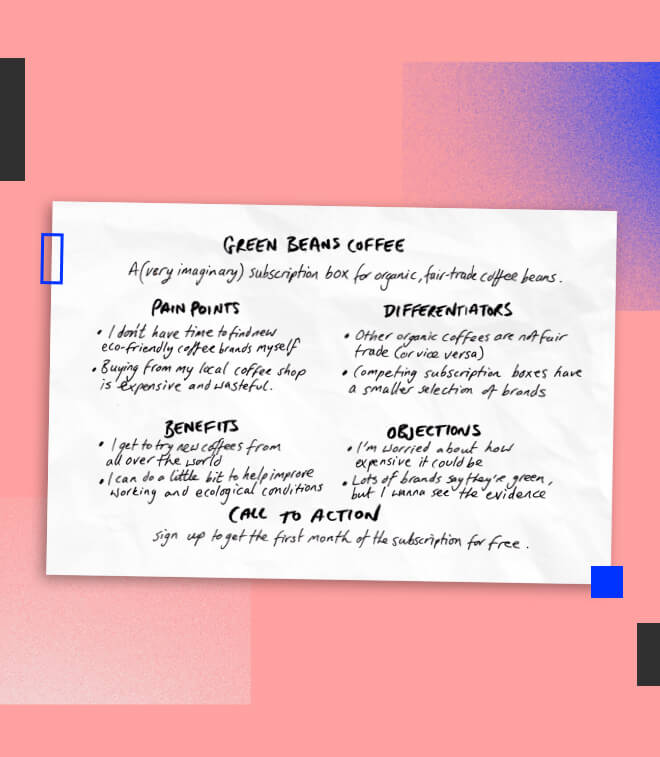 GREEN BEANS COFFEE
A (very imaginary) subscription box for organic, fair-trade coffee beans.
PAIN POINTS
• I don't have time to find new
eco-friendly coffee brands myself
• Buying from my local coffee shop
is expensive and wasteful.
DIFFERENTIATORS
• Other organic coffees are not fair
trade (or vice versa)
• Competing subscription boxes have
a smaller selection of brands
BENEFITS
• I get to try new coffees from
all over the world
• I can do a little bit to help improve
working and ecological conditions
OBJECTIONS
• I'm worried about how
expensive it could be
• Lots of brands say they're green,
but I wanna see the evidence
CALL TO ACTION
sign up to get the first month of the subscription for free.